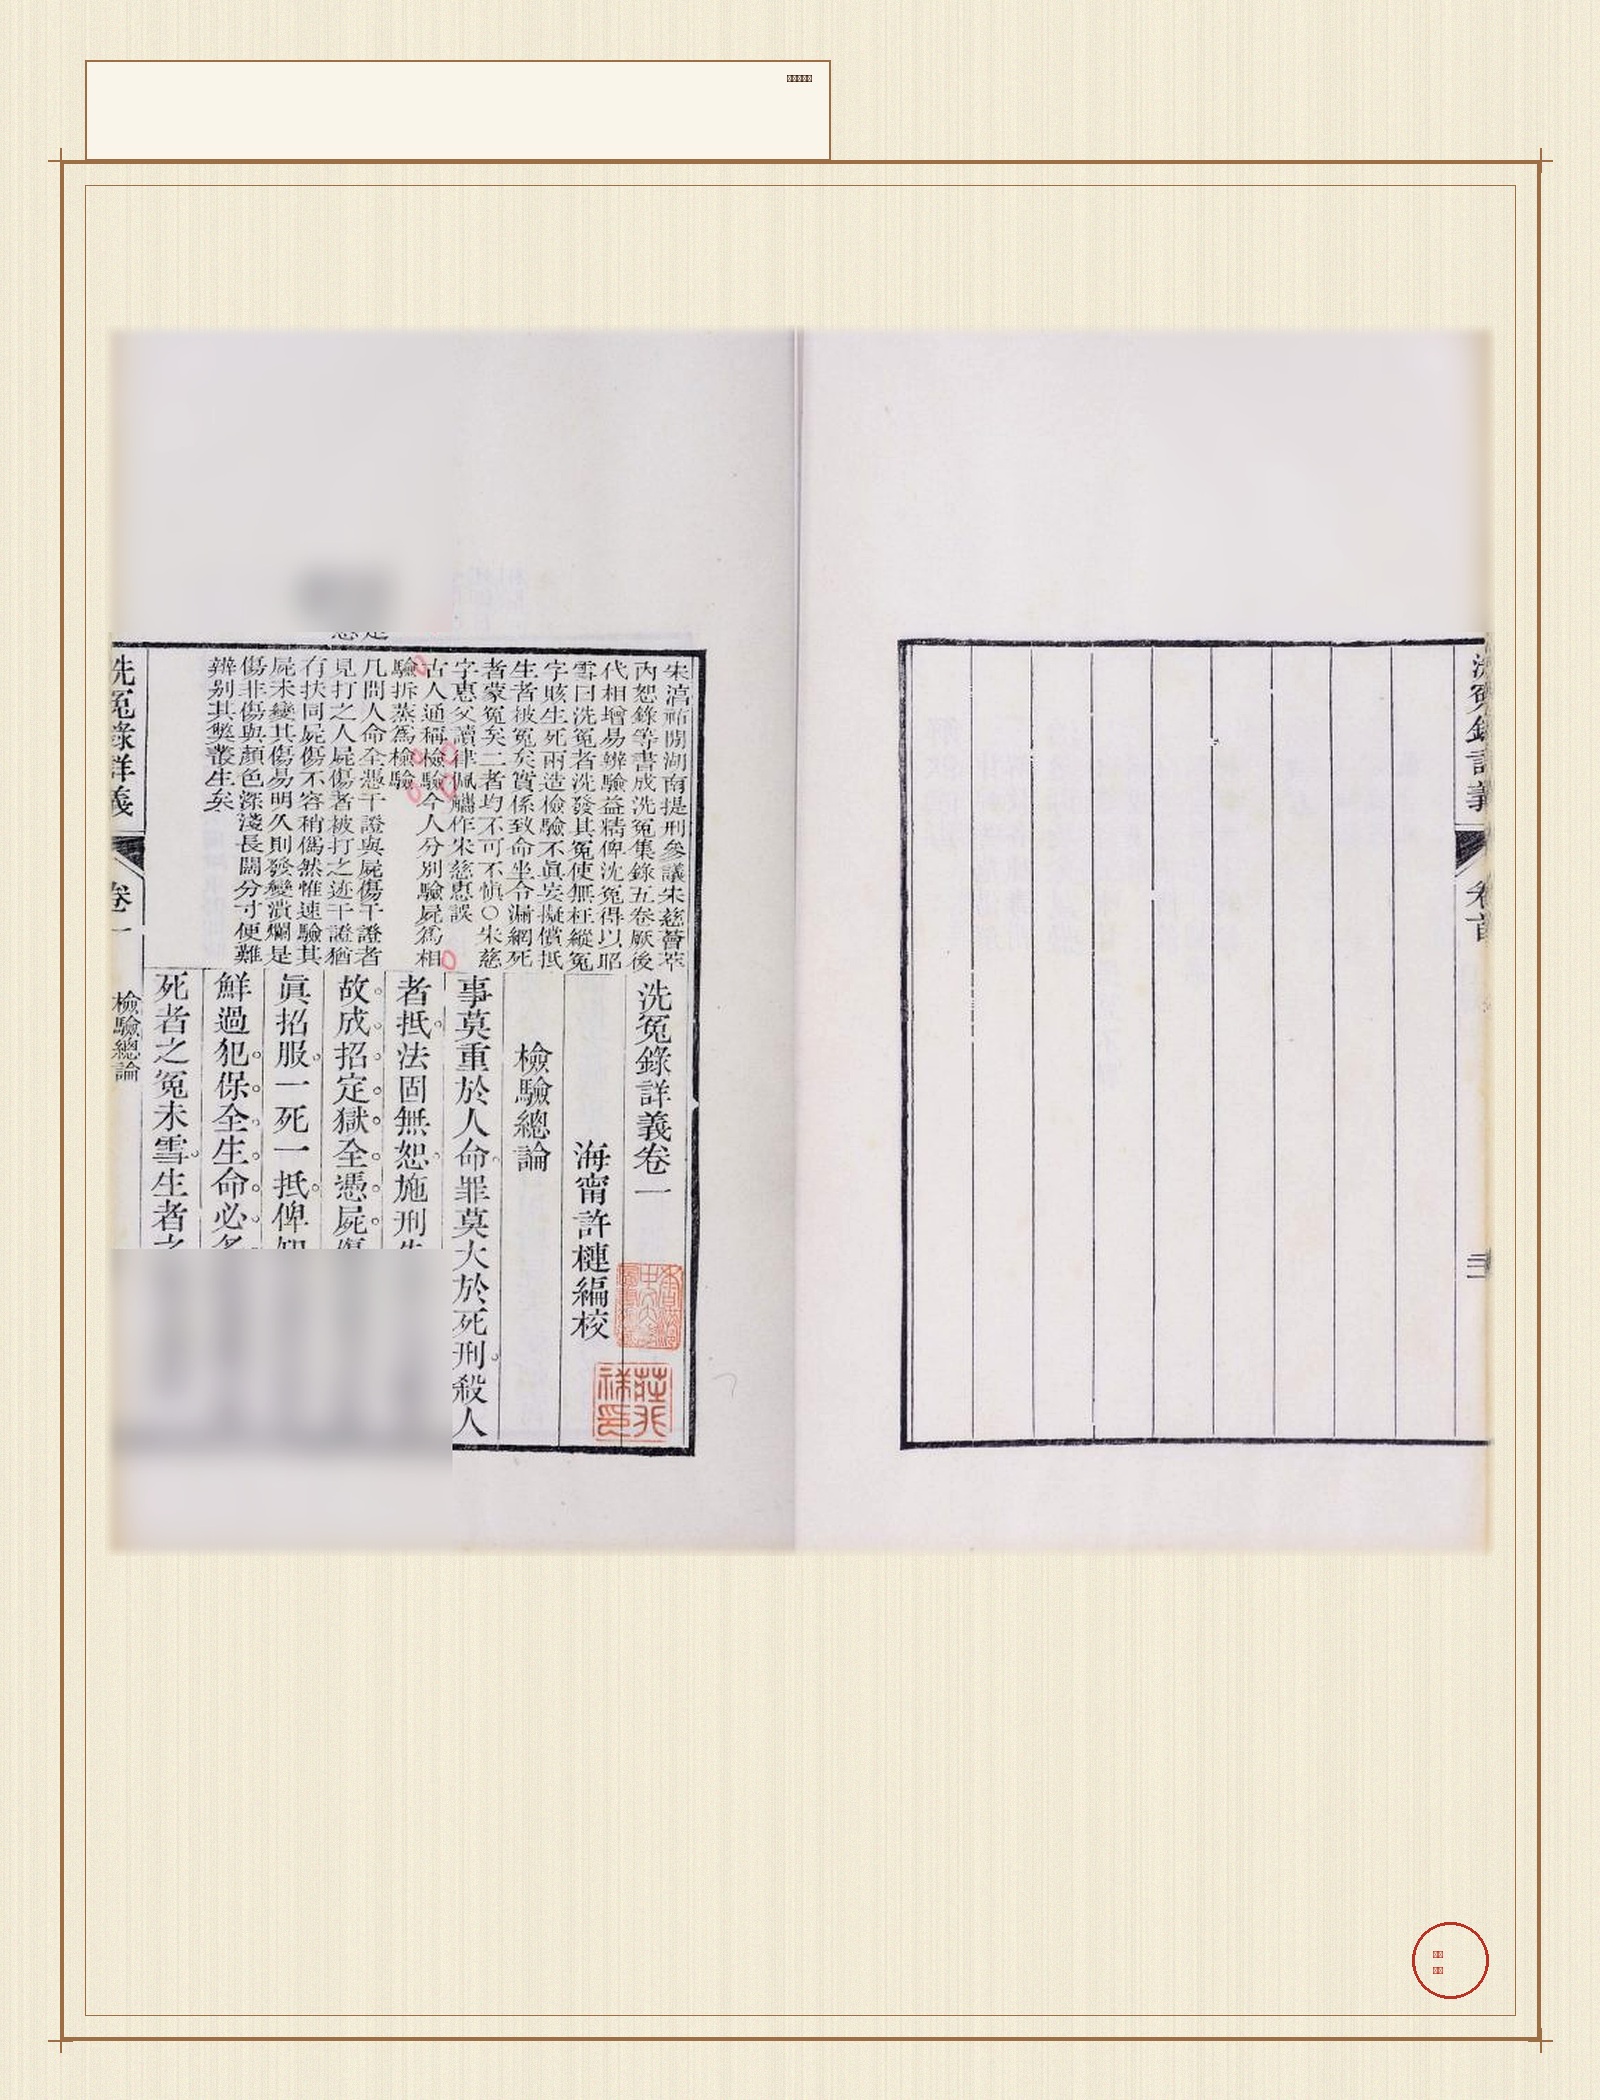 洗冤錄詳義
卷首
三
宋淳祐閒湖南提刑參議朱慈薈萃
內恕錄等書成洗冤集錄五卷厥後
代相增易辨驗益精俾沈冤得以昭
雪曰洗冤者洗發其冤使無枉縱冤
字賅生死兩造檢驗不眞妄擬償抵
生者被冤矣實係致命坐令漏網死
者蒙冤矣二者均不可不愼○朱慈
字惠父讀律佩觿作宋慈惠誤
古人通稱檢驗今人分別驗屍爲相
驗拆蒸爲檢驗
凡問人命全憑干證與屍傷干證者
見打之人屍傷者被打之迹干證猶
有扶同屍傷不容稍僞然惟速驗其
屍未變其傷易明久則發變潰爛是
傷非傷與顏色深淺長闊分寸便難
辨别其獘叢生矣
洗冤錄詳義卷一
海甯許槤編校
檢驗總論
事莫重於人命罪莫大於死刑殺人
者抵法固無恕施刑失
故成招定獄全憑屍傷
眞招服一死一抵俾知
鮮過犯保全生命必多
死者之冤未雪生者之
洗冤錄詳義
卷一
檢驗總論